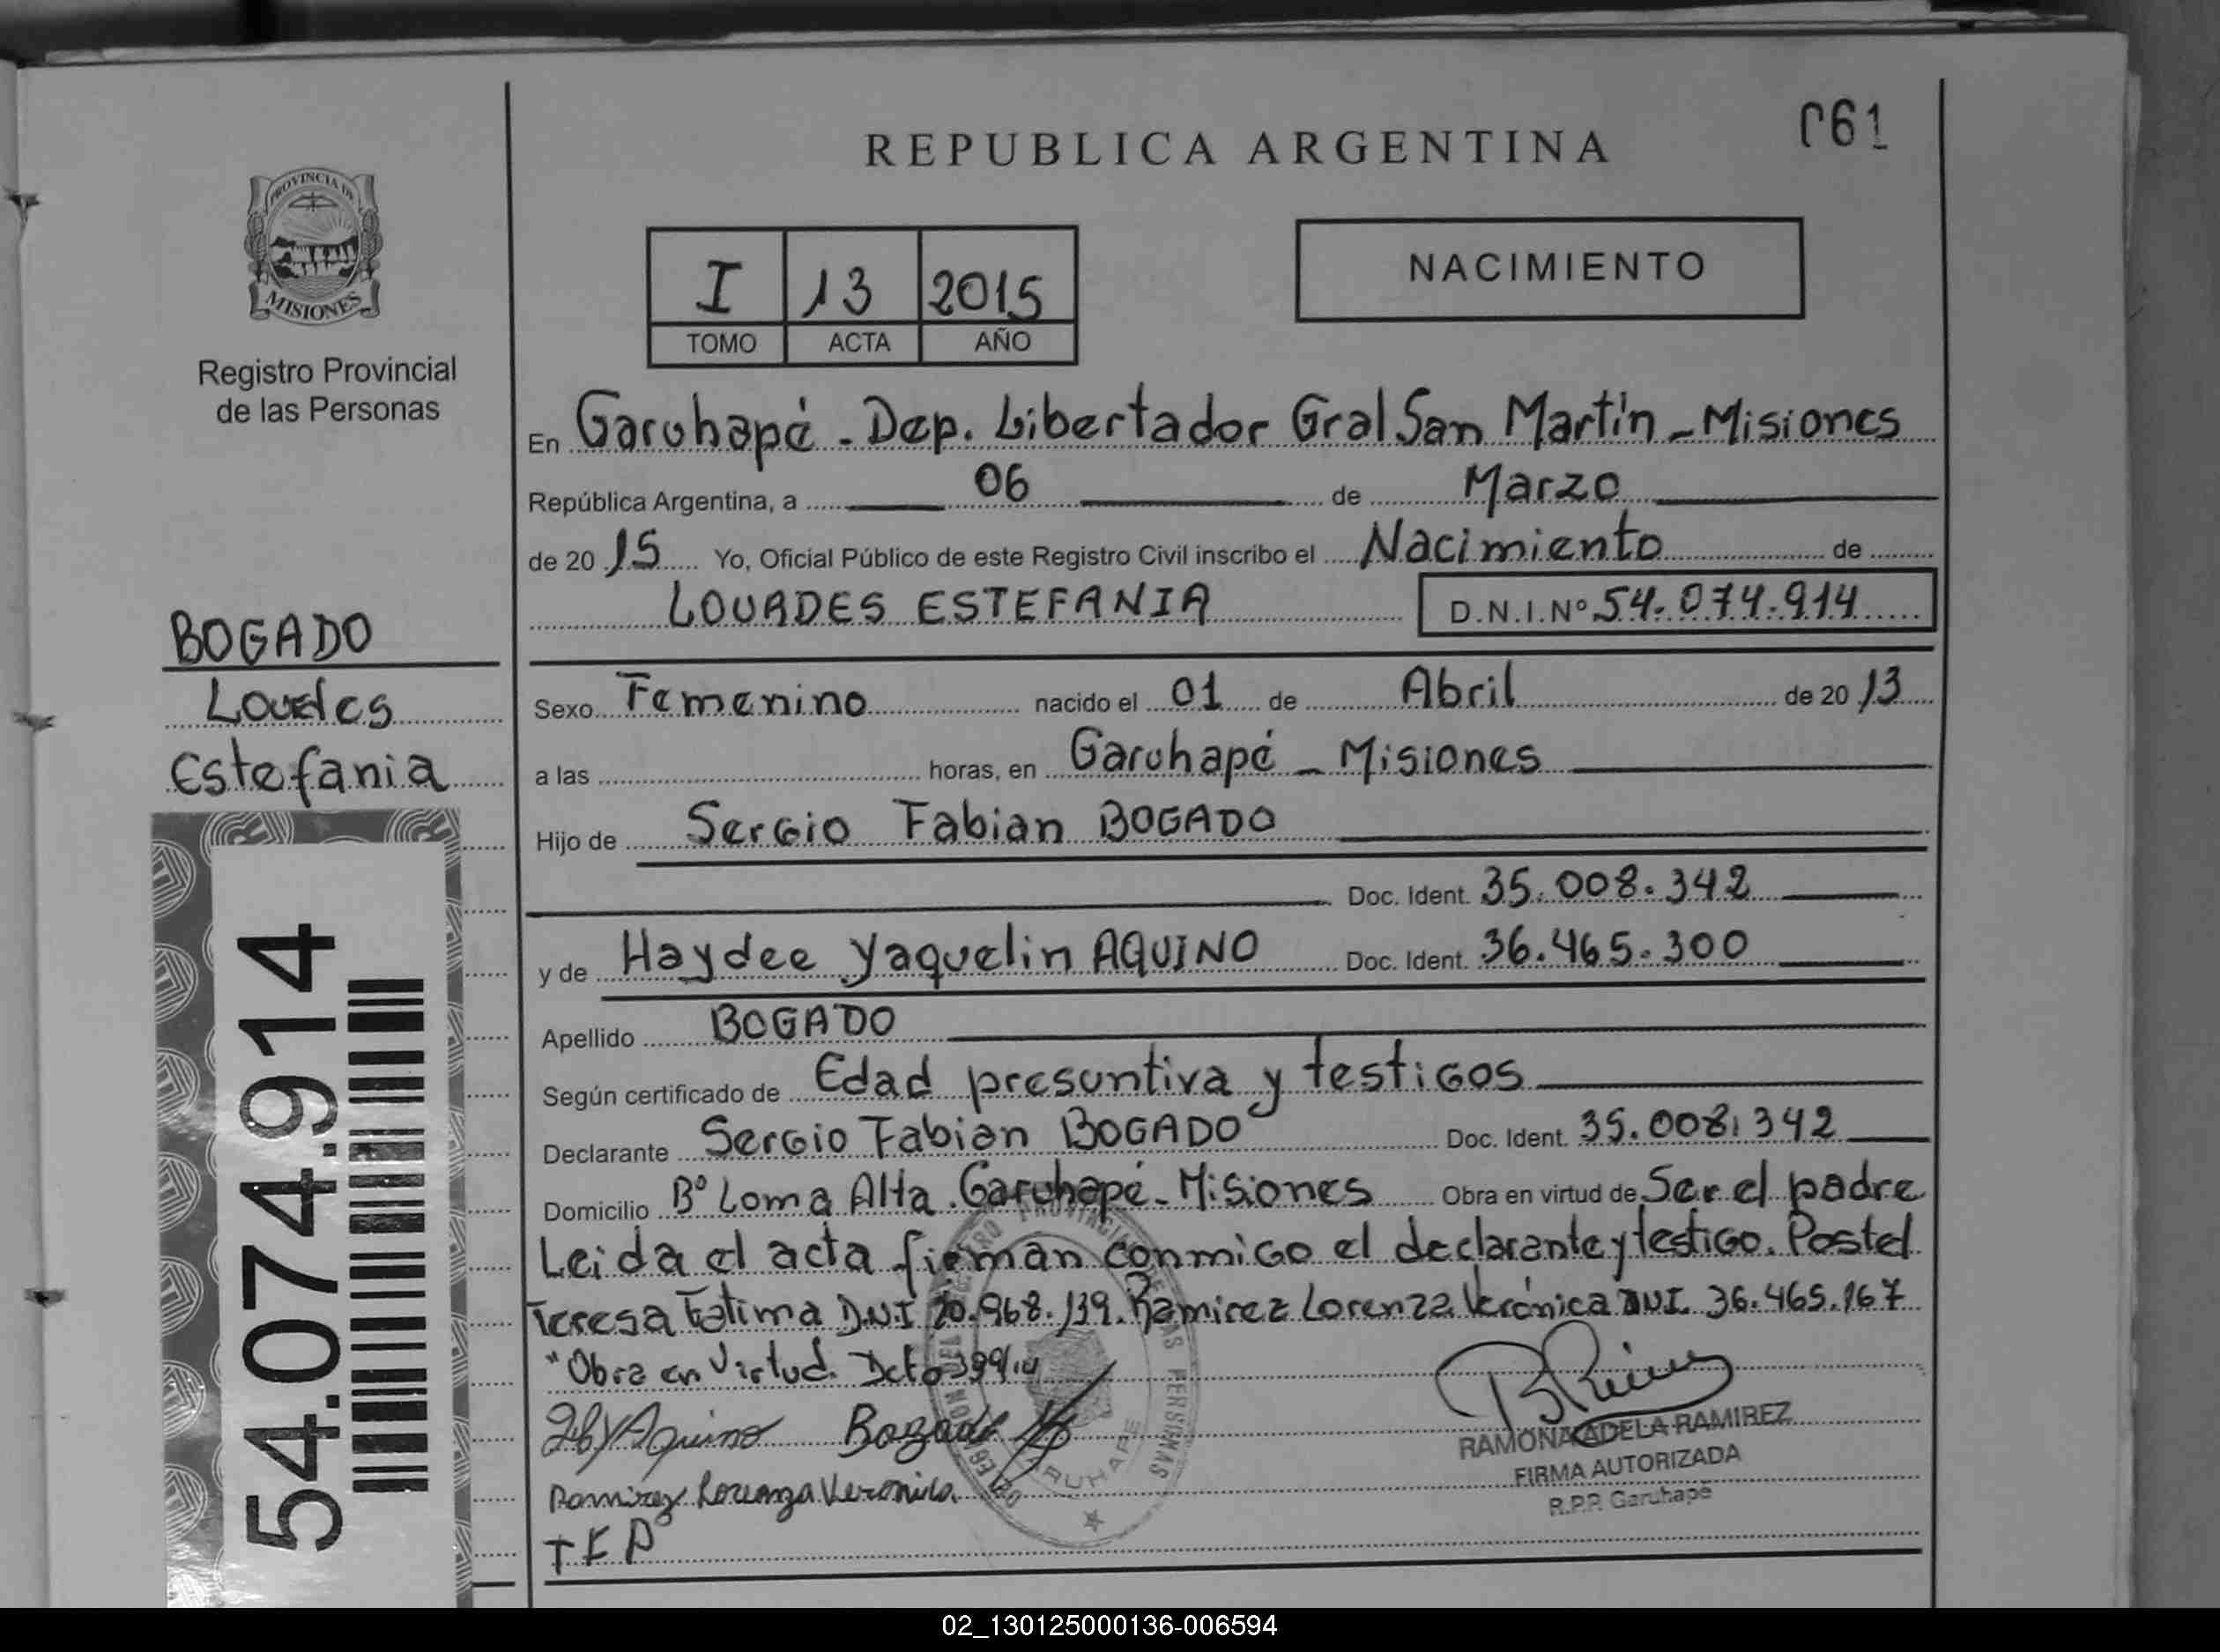 REPUBLICA ARGENTINA
061
PROVINCIA DE
MISIONES
Registro Provincial
de las Personas
I 13 2015
TOMO ACTA AÑO
NACIMIENTO
En Garuhapé - Dep. Libertador Gral San Martín - Misiones
República Argentina, a 06 de Marzo
de 20 15 Yo, Oficial Público de este Registro Civil inscribo el Nacimiento de
LOURDES ESTEFANIA D.N.I. Nº 54.074.914
BOGADO
Lourdes
Estefania
Sexo Femenino nacido el 01 de Abril de 20 13
a las horas, en Garuhapé - Misiones
Hijo de Sergio Fabian BOGADO
Doc. Ident. 35.008.342
y de Haydee Yaquelin AQUINO Doc. Ident. 36.465.300
Apellido BOGADO
Según certificado de Edad presuntiva y testigos
Declarante Sergio Fabian BOGADO Doc. Ident. 35.008.342
Domicilio Bº Loma Alta. Garuhapé - Misiones Obra en virtud de Ser el padre
Leida el acta firman conmigo el declarante y testigo. Postel
Teresa Fatima D.N.I 20.968.139. Ramirez Lorenza Verónica DNI. 36.465.167
"Obra en Virtud. Dcto 339/14
Aquino Bogado
Ramirez Lorenza Veronica
T F P
RAMONA ADELA RAMIREZ
FIRMA AUTORIZADA
R.P.P. Garuhapé
54.074.914
02_130125000136-006594